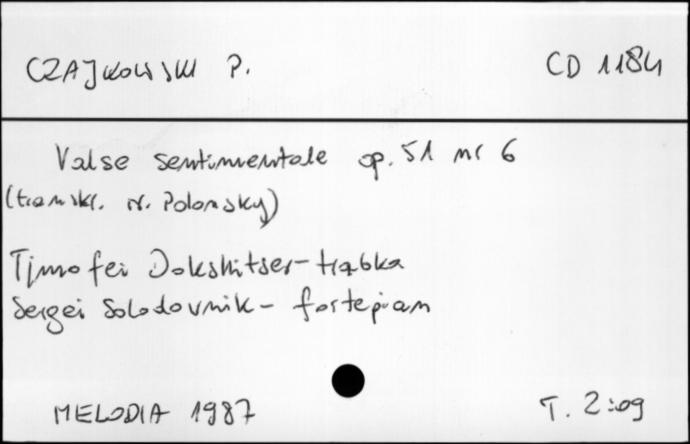 CZAJKOWSKI P. CD 1184
Valse sentimentale op. 51 nr 6
(transkr. W. Polonsky)
Timofei Dokshitser - trąbka
Sergei Solodovnik - fortepian
MELODIA 1987 T. 2:09